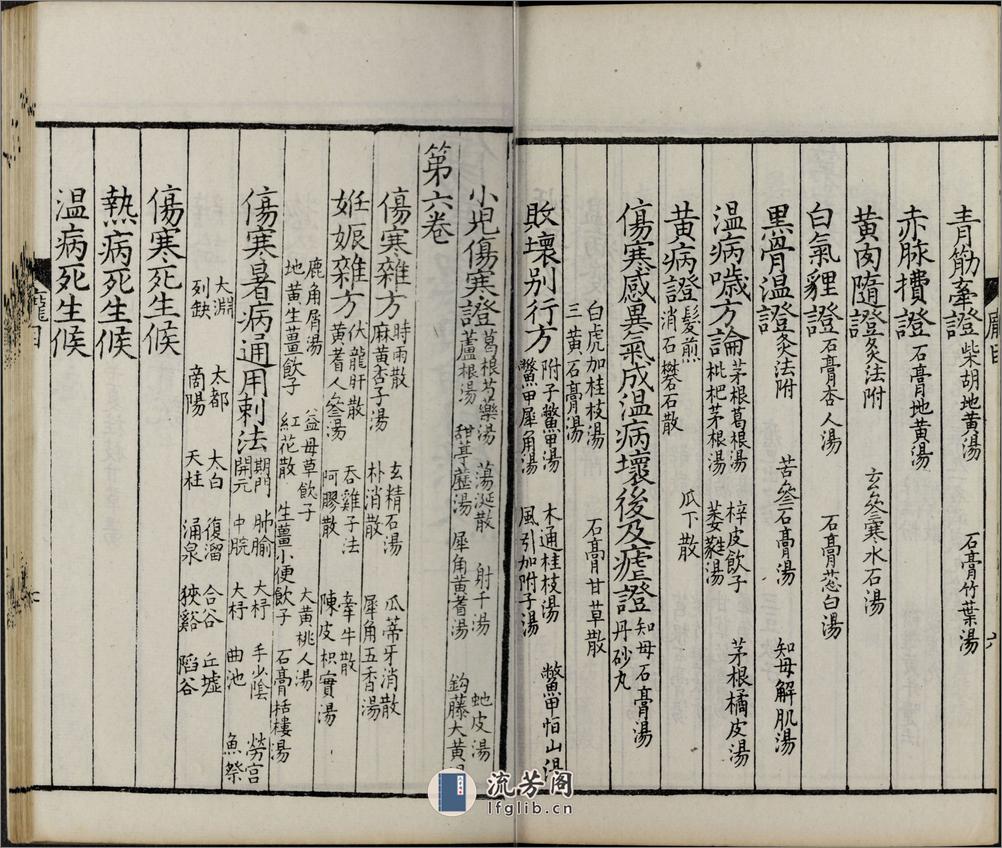 青筋牽證 柴胡地黃湯 石膏竹葉湯
赤脉攢證 石膏地黃湯
黃肉隨證 灸法附 玄參寒水石湯
白氣貍證 石膏杏人湯 石膏葱白湯
黑骨温證 灸法附 苦參石膏湯 知母解肌湯
温病噦方論 茅根葛根湯 梓皮飲子 茅根橘皮湯
枇杷茅根湯 萎蕤湯
黃病證 髮煎 瓜下散
消石礬石散
傷寒感異氣成温病壞後及瘧證 知母石膏湯
丹砂丸
白虎加桂枝湯 石膏甘草散
三黃石膏湯
敗壞别行方 附子鱉甲湯 木通桂枝湯 鱉甲怕山湯
鱉甲犀角湯 風引加附子湯
小兒傷寒證 葛根芍藥湯 蕩涎散 射干湯 虵皮湯
蘆根湯 甜葶藶湯 犀角黃耆湯 鈎藤大黃
第六卷
傷寒雜方 時雨散 玄精石湯 瓜蒂牙消散
麻黃杏子湯 朴消散 犀角五香湯
妊娠雜方 伏龍肝散 吞雞子法 牽牛散
黃耆人參湯 阿膠散 陳皮枳實湯
鹿角屑湯 益母草飲子 大黃桃人湯
地黃生薑飲子 紅花散 生薑小便飲子 石膏栝樓湯
傷寒暑病通用刺法 期門 肺腧 大杼 手少陰 勞宮
開元 中脘 大杼 曲池 魚祭
大淵 太都 太白 復溜 合谷 丘墟
列缺 商陽 天柱 涌泉 狹谿 陷谷
傷寒死生候
熱病死生候
温病死生候
龐目
七
龐目
六
流芳阁
lfglib.cn